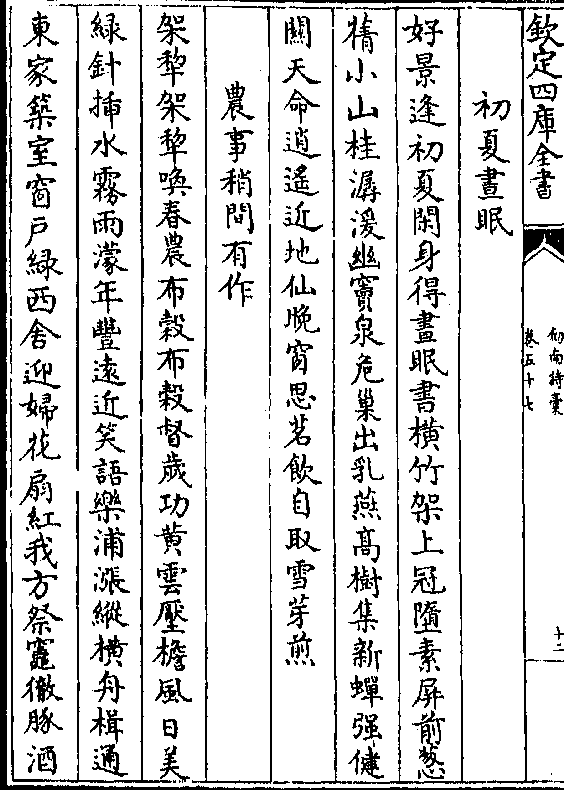 欽定四庫全書
劍南詩稾
卷五十七
十二
初夏晝眠
好景逢初夏閑身得晝眠書橫竹架上冠墮素屏前葱
蒨小山桂潺湲幽竇泉危巢出乳燕高樹集新蟬强健
關天命逍遙近地仙晚窗思茗飲自取雪芽煎
農事稍間有作
架犂架犂喚春農布穀布穀督歲功黄雲壓檐風日美
綠針揷水霧雨濛年豐遠近笑語樂浦漲縱橫舟楫通
東家築室窗戶綠西舍迎婦花扇紅我方祭竈徹豚酒